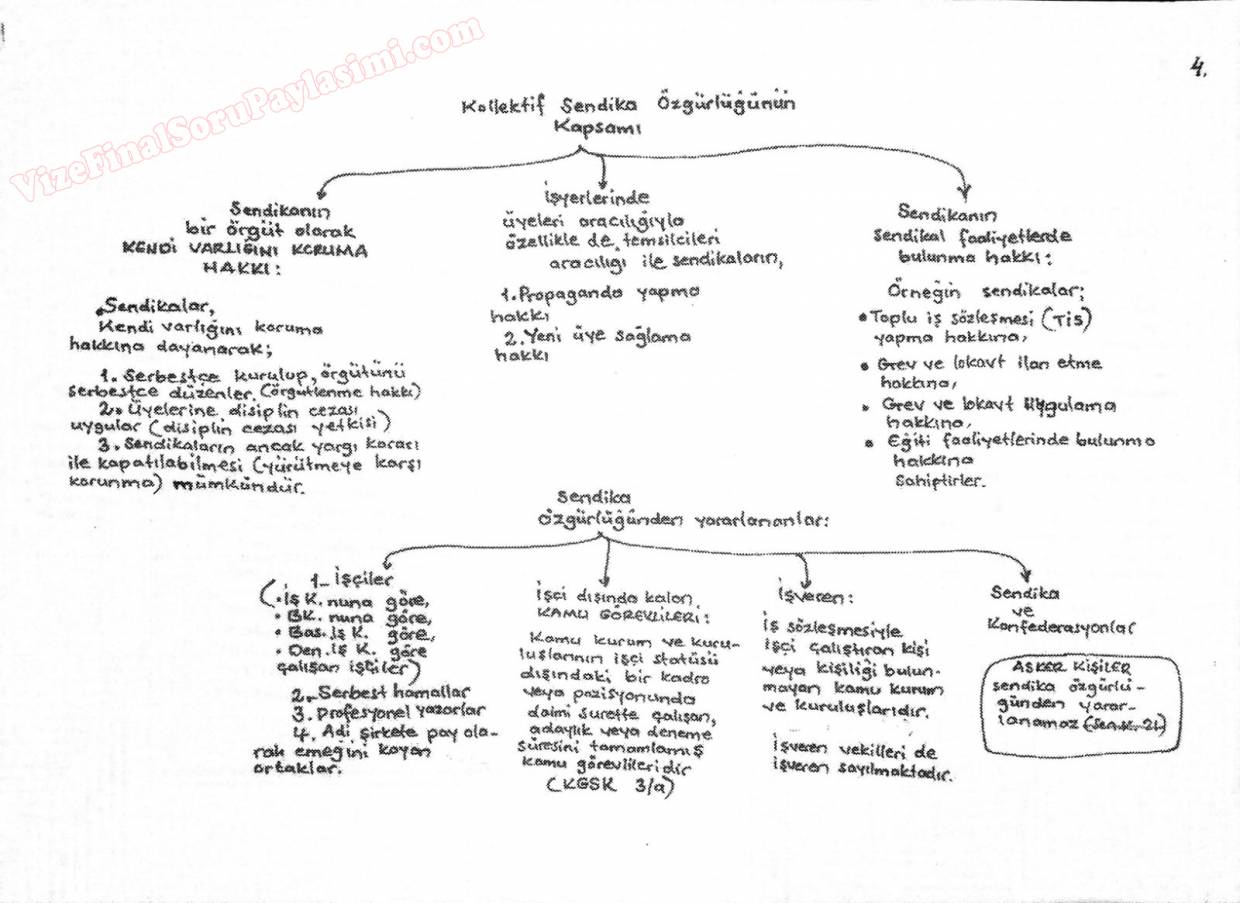 VizeFinalSoruPaylasimi.com
4.
Kollektif Sendika Özgürlüğünün
Kapsamı
Sendikanın
bir örgüt olarak
KENDİ VARLIĞINI KORUMA
HAKKI:
•Sendikalar,
Kendi varlığını koruma
hakkına dayanarak;
1. Serbestçe kurulup, örgütünü
serbestçe düzenler. (örgütlenme hakkı)
2. Üyelerine disiplin cezası
uygular (disiplin cezası yetkisi)
3. Sendikaların ancak yargı kararı
ile kapatılabilmesi (yürütmeye karşı
korunma) mümkündür.
İşyerlerinde
üyeleri aracılığıyla
özellikle de temsilcileri
aracılığı ile sendikaların,
1. Propaganda yapma
hakkı
2. Yeni üye sağlama
hakkı
Sendikanın
sendikal faaliyetlerde
bulunma hakkı:
Örneğin sendikalar;
• Toplu iş sözleşmesi (TİS)
yapma hakkına,
• Grev ve lokavt ilan etme
hakkına,
• Grev ve lokavt uygulama
hakkına,
• Eğiti faaliyetlerinde bulunma
hakkına
Sahiptirler.
Sendika
Özgürlüğünden yararlananlar:
1- İşçiler
(• İş K. nuna göre,
• BK. nuna göre,
• Bas. İş K. göre,
• Den. İş K. göre
çalışan işçiler)
2- Serbest hamallar
3. Profesyonel yazarlar
4. Adi şirkete pay ola-
rak emeğini koyan
ortaklar.
İşçi dışında kalan
KAMU GÖREVLİLERİ:
Kamu kurum ve kuru-
luşlarının işçi statüsü
dışındaki bir kadro
veya pozisyonunda
daimi surette çalışan,
adaylık veya deneme
süresini tamamlamış
kamu görevlileridir
(KGSK 3/a)
İşveren:
İş sözleşmesiyle
işçi çalıştıran kişi
veya kişiliği bulun-
mayan kamu kurum
ve kuruluşlarıdır.
İşveren vekilleri de
işveren sayılmaktadır.
Sendika
ve
Konfederasyonlar
ASKER KİŞİLER
sendika özgürlü-
ğünden yarar-
lanamaz (Sen.K. 21)